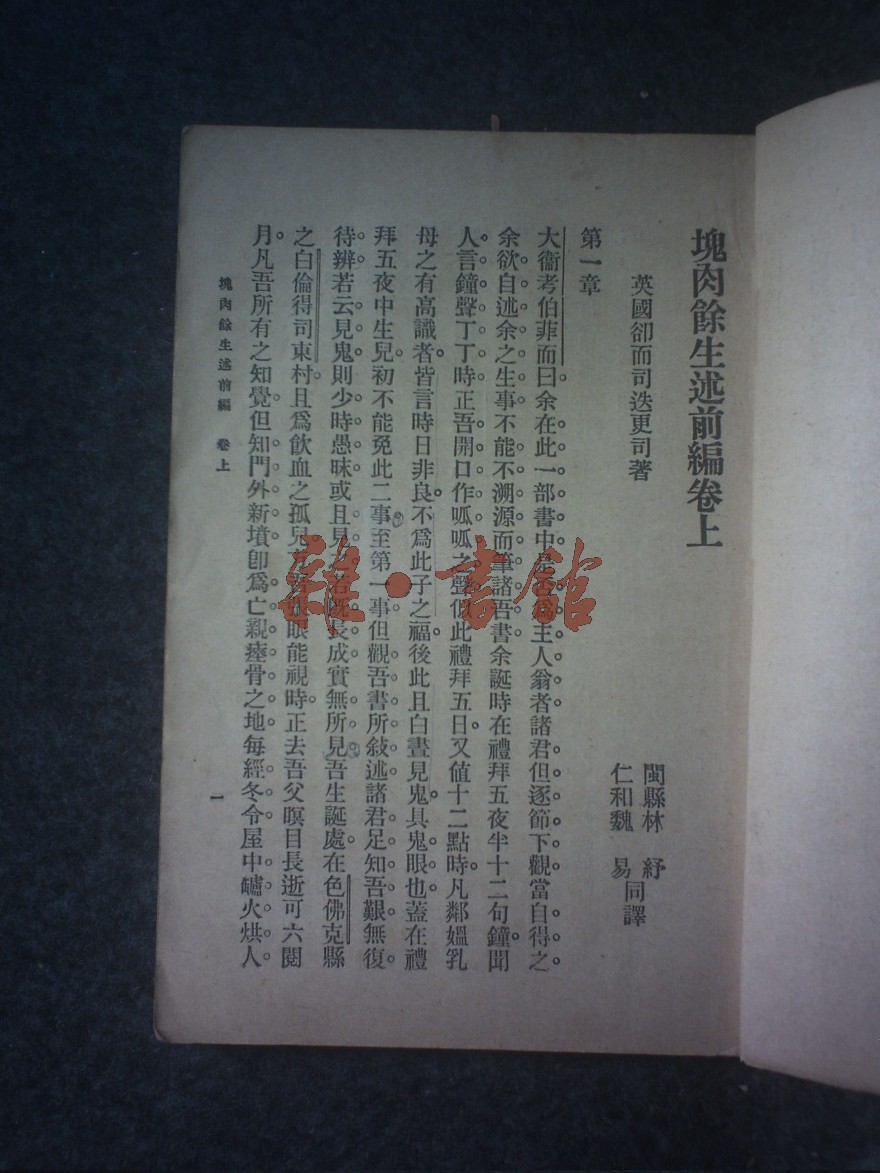 塊肉餘生述前編卷上
英國卻而司迭更司著
閩縣林　紓
仁和魏　易
同譯
第一章
大衞考伯菲而曰。余在此一部書中。是否爲主人翁者。諸君但逐節下觀。當自得之。
余欲自述余之生事。不能不溯源而筆諸吾書。余誕時在禮拜五夜半十二句鐘。聞
人言鐘聲丁丁時。正吾開口作呱呱之聲。似此禮拜五日。又值十二點時。凡鄰媼乳
母之有高識者。皆言時日非良。不爲此子之福。後此且白晝見鬼。具鬼眼也。蓋在禮
拜五夜中生兒。初不能免此二事。至第一事。但觀吾書所敍述。諸君足知吾艱。無復
待辨。若云見鬼。則少時愚昧。或且見之。若旣長成。實無所見。吾生誕處在色佛克縣
之白倫得司東村。且爲飲血之孤兒。眼能視時。正去吾父瞑目長逝可六閱
月。凡吾所有之知覺。但知門外新墳。卽爲亡親瘞骨之地。每經冬令。屋中罏火烘人。
塊肉餘生述前編　卷上
一
雜·書館